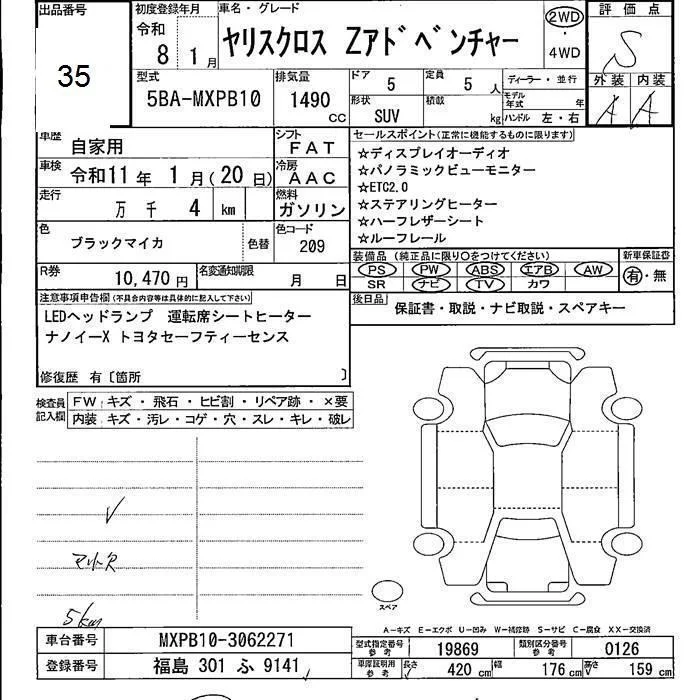 出品番号
35
初度登録年月
令和
8 1月
車名・グレード
ヤリスクロス Zアドベンチャー
2WD
・
4WD
評価点
S
外装 内装
A A
型式
5BA-MXPB10
排気量
1490
CC
ドア
5
定員
5 人
形状
SUV
積載
kg
ディーラー・並行
モデル年式 年
ハンドル 左・右
車歴
自家用
シフト
FAT
車検
令和11年 1月(20日)
冷房
AAC
走行
万 千 4 km
燃料
ガソリン
色
ブラックマイカ
色替
色コード
209
R券
10,470円
名変通知期限
月 日
セールスポイント(正常に機能するものに限ります)
☆ディスプレイオーディオ
☆パノラミックビューモニター
☆ETC2.0
☆ステアリングヒーター
☆ハーフレザーシート
☆ルーフレール
装備品(純正品に限り○をつけてください)
PS PW ABS エアB AW
SR ナビ TV カワ
新車保証書
有・無
後日品
保証書・取説・ナビ取説・スペアキー
注意事項申告欄(不具合内容等は具体的に記入して下さい)
LEDヘッドランプ 運転席シートヒーター
ナノイーX トヨタセーフティーセンス
修復歴 有〔箇所 〕
検査員
記入欄
FW キズ・飛石・ヒビ割・リペア跡・×要
内装 キズ・汚レ・コゲ・穴・スレ・キレ・破レ
マットR
5km
スペア
A-キズ E-エクボ U-凹み W-補修跡 S-サビ C-腐食 XX-交換済
車台番号
MXPB10-3062271
登録番号
福島 301 ふ 9141
型式指定番号
参考
19869
類別区分番号
参考
0126
車庫証明用
参考
長さ 420 cm 幅 176 cm 高さ 159 cm